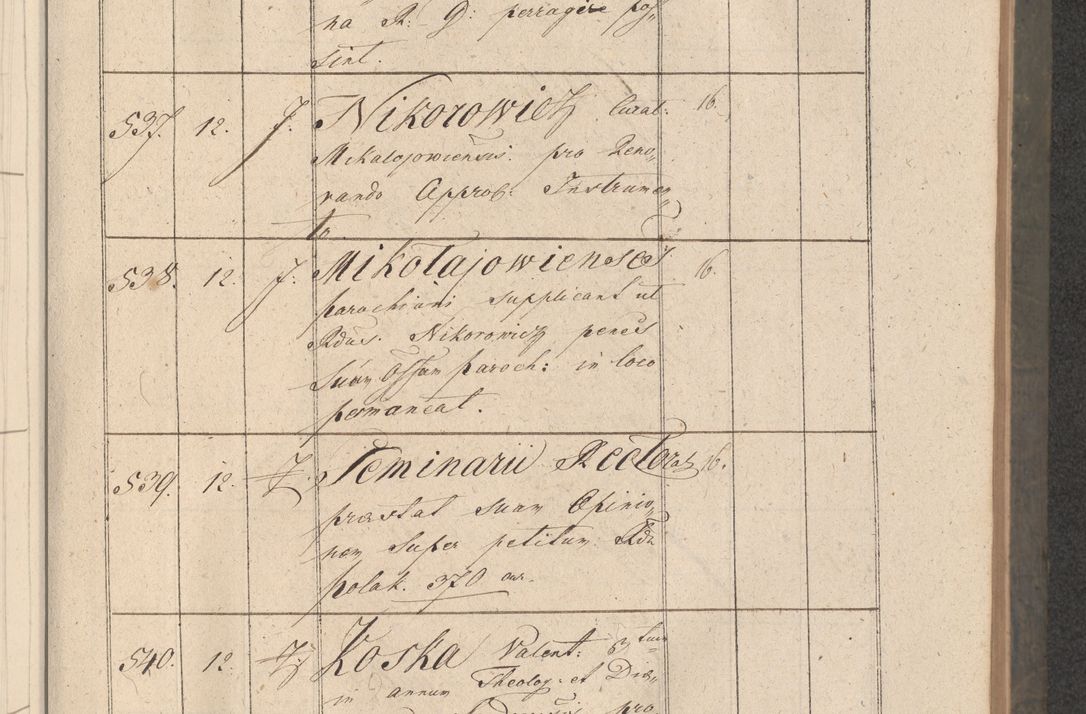 na R. D: perragere pos„
sint.
537. 12. J. Nikorowicz Curat. 16.
Mikalajowiensis. pro Reno„
vando Approb: Instrumen„
to
538. 12. J. Mikołajowienses 16.
parochiani supplicant ut
Rdus. Nikorowicz penes
suam Ossam paroch: in loco
permaneat.
539. 12. Z. Seminarii Rectorat 16.
praestat suam Opinio„
nem super petitum Rdi
Polak. 370
540. 12. Z. Koska Valent: 3tium
in annum Theolog. et Diæ„
pro